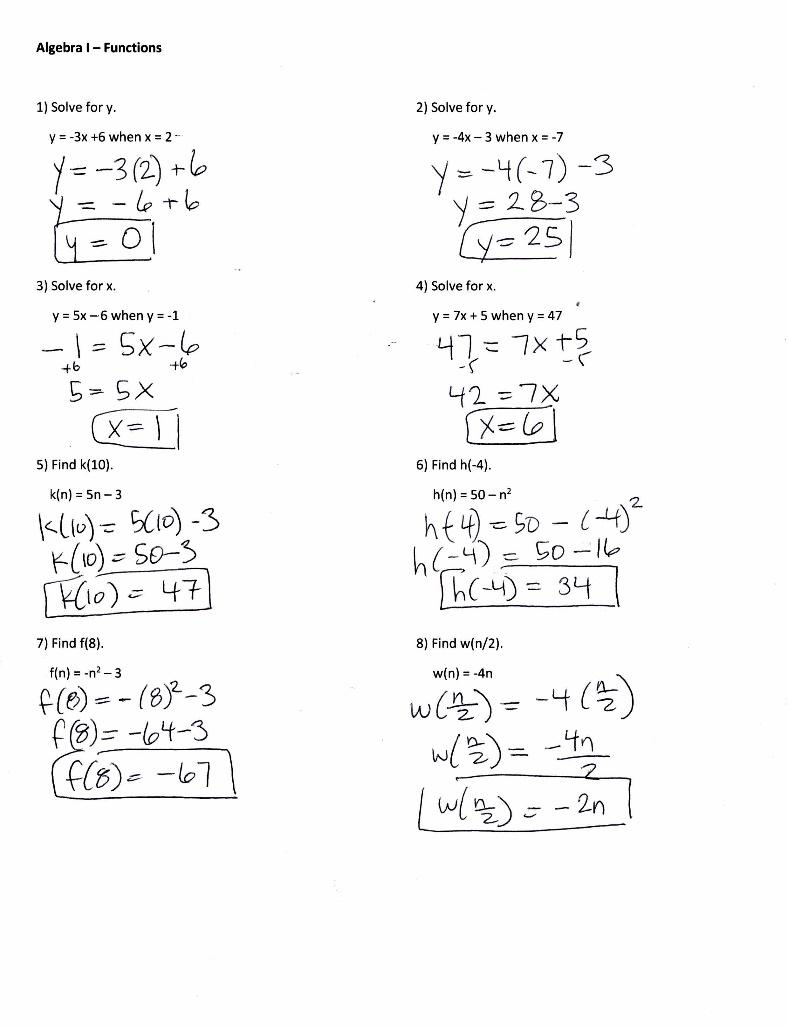 Algebra I – Functions
1) Solve for y.
y = -3x +6 when x = 2
y = -3(2) +6
y = -6+6
y = 0
2) Solve for y.
y = -4x – 3 when x = -7
y = -4(-7) -3
y = 28-3
y= 25
3) Solve for x.
y = 5x – 6 when y = -1
-1 = 5x-6
+6 +6
5 = 5x
x = 1
4) Solve for x.
y = 7x + 5 when y = 47
47 = 7x +5
-5 -5
42 = 7x
x= 6
5) Find k(10).
k(n) = 5n – 3
k(10) = 5(10) -3
k(10) = 50-3
k(10) = 47
6) Find h(-4).
h(n) = 50 – n²
h(-4) = 50 - (-4)²
h(-4) = 50 -16
h(-4) = 34
7) Find f(8).
f(n) = -n² – 3
f(8) = -(8)²-3
f(8) = -64-3
f(8) = -67
8) Find w(n/2).
w(n) = -4n
w(n/2) = -4 (n/2)
w(n/2) = -4n/2
w(n/2) = -2n